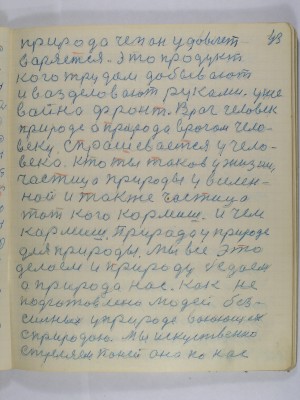 природа чем он удовлет- 43
варяется. Это продукт
кого трудам добывают
и вазделовают руками. уже
вайна фронт. Враг человек
природе а природа врогом чело-
веку. Спрашевается у чело-
века. Кто ты таков у жизни,
частица природы у вилен-
ной и также частица
тот кого кармиш. и чем
кармиш. Природа у природе
для природы. Мы все это
делаем и природу едаем
а природа нас. Как не
подготовлено людей без-
сильных у природе воюющех
сприродою. Мы искуственно
стреляем поней она по нас